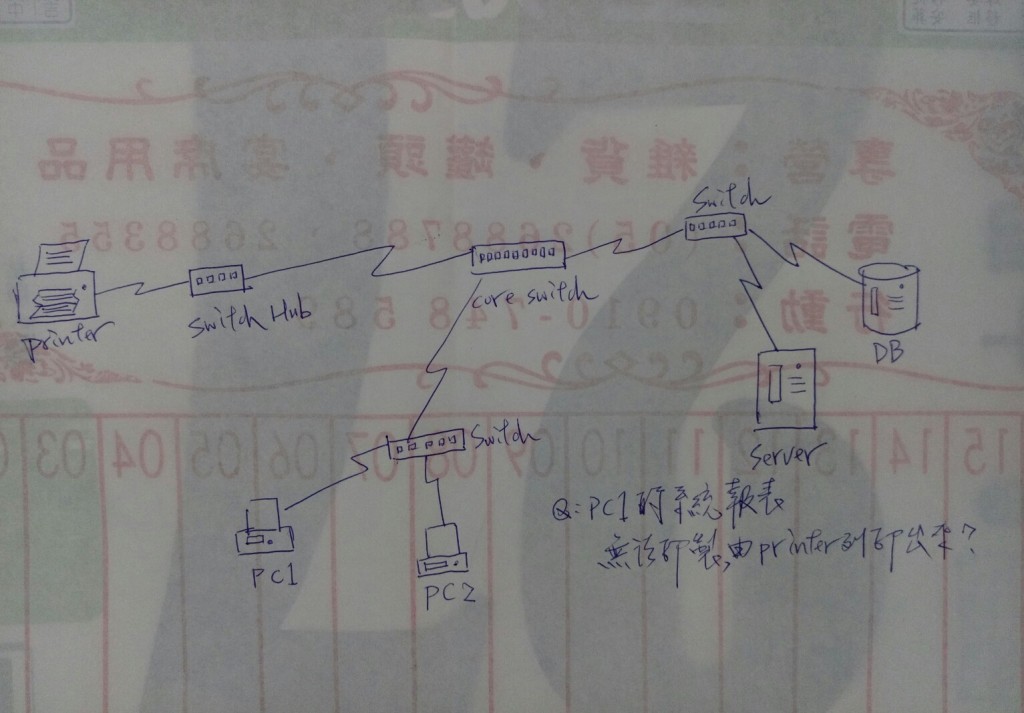 專營：雜貨．罐頭．宴席用品
Switch
core switch
Switch Hub
printer
DB
Switch
Server
PC1
PC2
03 04 05 06 07 08 09 10 11 12 13 14 15
Q：PC1的系統報表
無法印製,由printer列印出來？